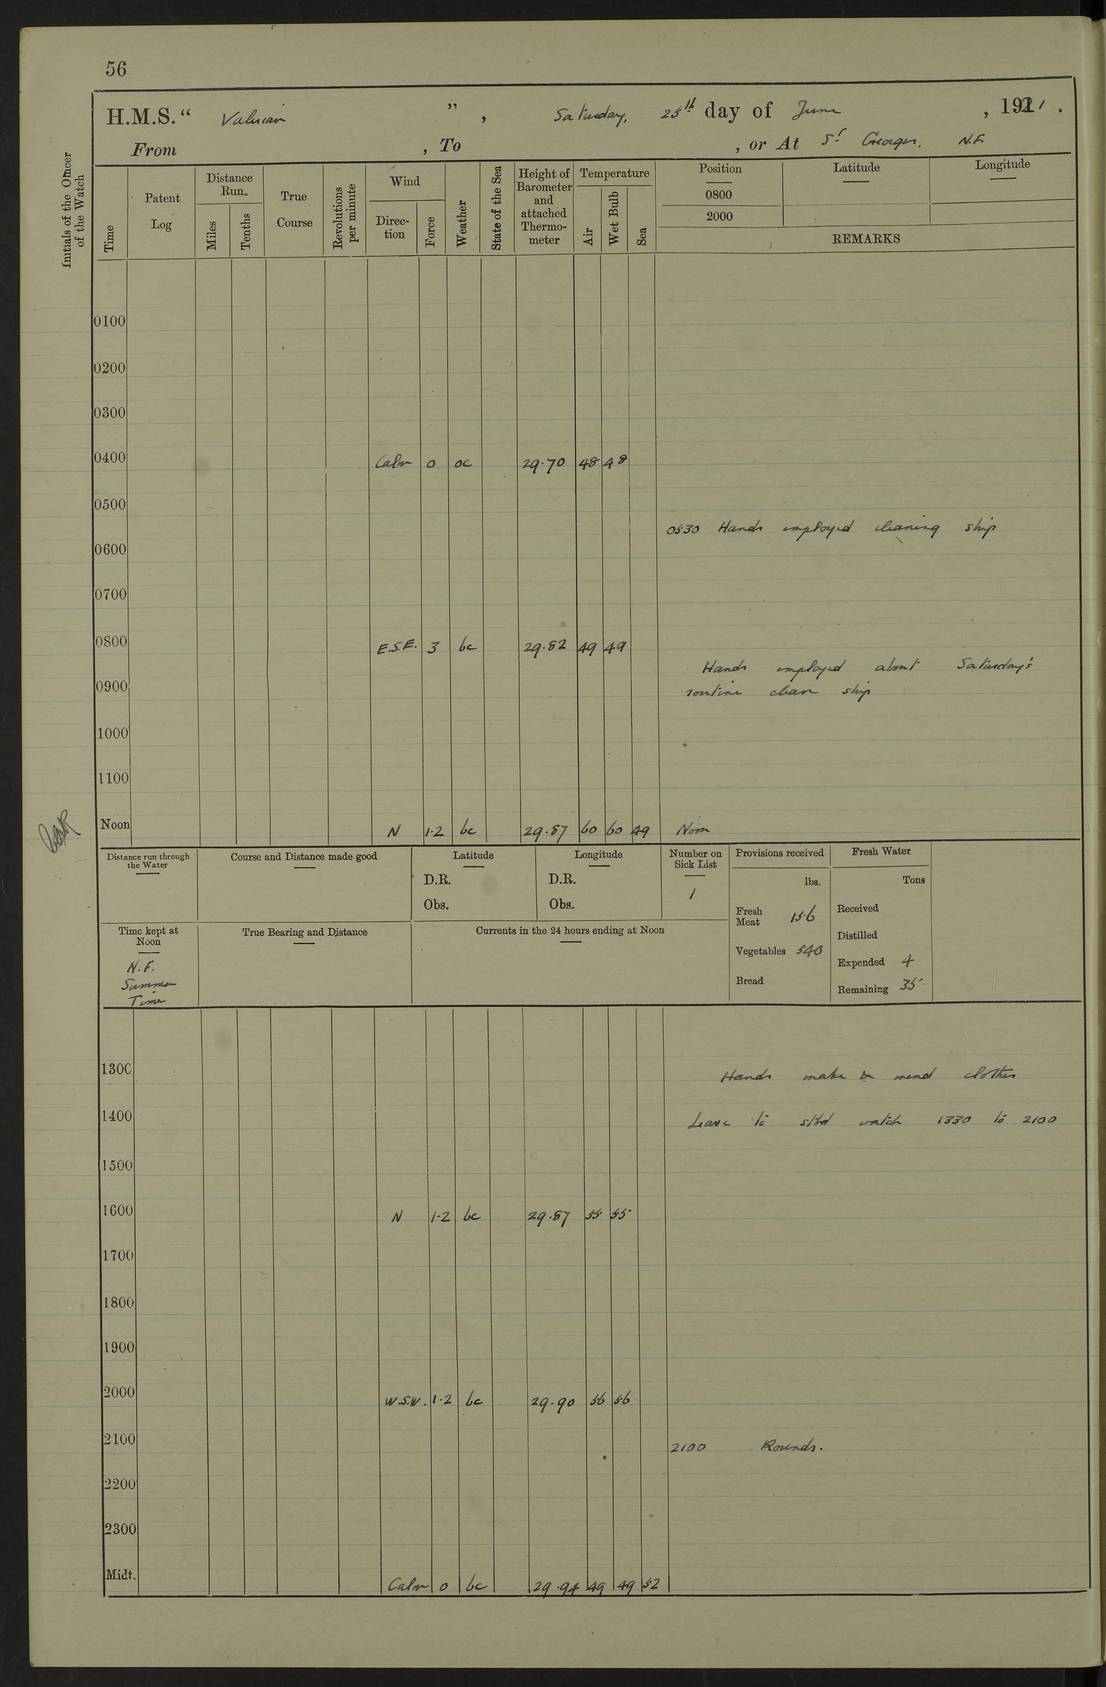 56
H.M.S. “ Valerian ” , Saturday, 25th day of June , 1921 .
From , To , or At St Georges. N.F.
Initials of the Officer of the Watch
Time
Patent Log
Distance Run.
Miles
Tenths
True Course
Revolutions per minute
Wind
Direc-tion
Force
Weather
State of the Sea
Height of Barometer and attached Thermo-meter
Temperature
Air
Wet Bulb
Sea
Position
Latitude
Longitude
0800
2000
REMARKS
0100
0200
0300
0400 Calm 0 oc 29.70 48 48
0500
0530 Hands employed cleaning ship
0600
0700
0800 E.S.E. 3 bc 29.82 49 49
Hands employed about Saturday's
0900 routine clean ship
1000
1100
Noon N 1.2 bc 29.87 60 60 49 Noon
Distance run through the Water
Course and Distance made good
Latitude
D.R.
Obs.
Longitude
D.R.
Obs.
Number on Sick List
1
Provisions received
lbs.
Fresh Meat 156
Vegetables 540
Bread
Fresh Water
Tons
Received
Distilled
Expended 4
Remaining 35
Time kept at Noon
N.F.
Summer
Time
True Bearing and Distance
Currents in the 24 hours ending at Noon
1300 Hands make & mend clothes
1400 Leave to stbd watch 1330 to 2100
1500
1600 N 1.2 bc 29.87 55 55
1700
1800
1900
2000 W.S.W. 1.2 bc 29.90 56 56
2100 2100 Rounds.
2200
2300
Midt. Calm 0 bc 29.94 49 49 52